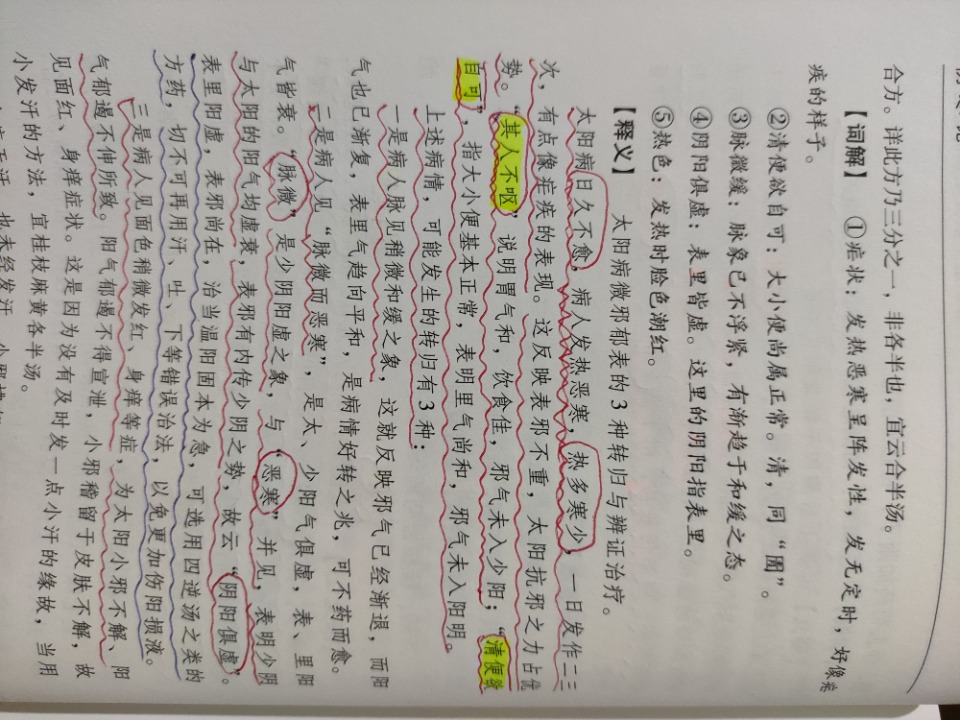 合方。详此方乃三分之一，非各半也，宜云合半汤。
【词解】 ①疟状：发热恶寒呈阵发性，发无定时，好像疟
疾的样子。
②清便欲自可：大小便尚属正常。清，同“圊”。
③脉微缓：脉象已不浮紧，有渐趋于和缓之态。
④阴阳俱虚：表里皆虚。这里的阴阳指表里。
⑤热色：发热时脸色潮红。
【释义】 太阳病微邪郁表的3种转归与辨证治疗。
太阳病日久不愈，病人发热恶寒，热多寒少，一日发作二三
次，有点像疟疾的表现。这反映表邪不重，太阳抗邪之力占优
势。“其人不呕”，说明胃气和，饮食佳，邪气未入少阳；“清便欲
自可”，指大小便基本正常，表明里气尚和，邪气未入阳明。
上述病情，可能发生的转归有3种：
一是病人脉见稍微和缓之象，这就反映邪气已经渐退，而阳
气也已渐复，表里气趋向平和，是病情好转之兆，可不药而愈。
二是病人见“脉微而恶寒”，是太、少阳气俱虚，表、里阳
气皆衰。“脉微”是少阴阳虚之象，与“恶寒”并见，表明少阴
与太阳的阳气均虚衰，表邪有内传少阴之势，故云“阴阳俱虚”。
表里阳虚，表邪尚在，治当温阳固本为急，可选用四逆汤之类的
方药，切不可再用汗、吐、下等错误治法，以免更加伤阳损液。
三是病人见面色稍微发红、身痒等症，为太阳小邪不解、阳
气郁遏不伸所致。阳气郁遏不得宣泄，小邪稽留于皮肤不解，故
见面红、身痒症状。这是因为没有及时发一点小汗的缘故，当用
小发汗的方法，宜桂枝麻黄各半汤。